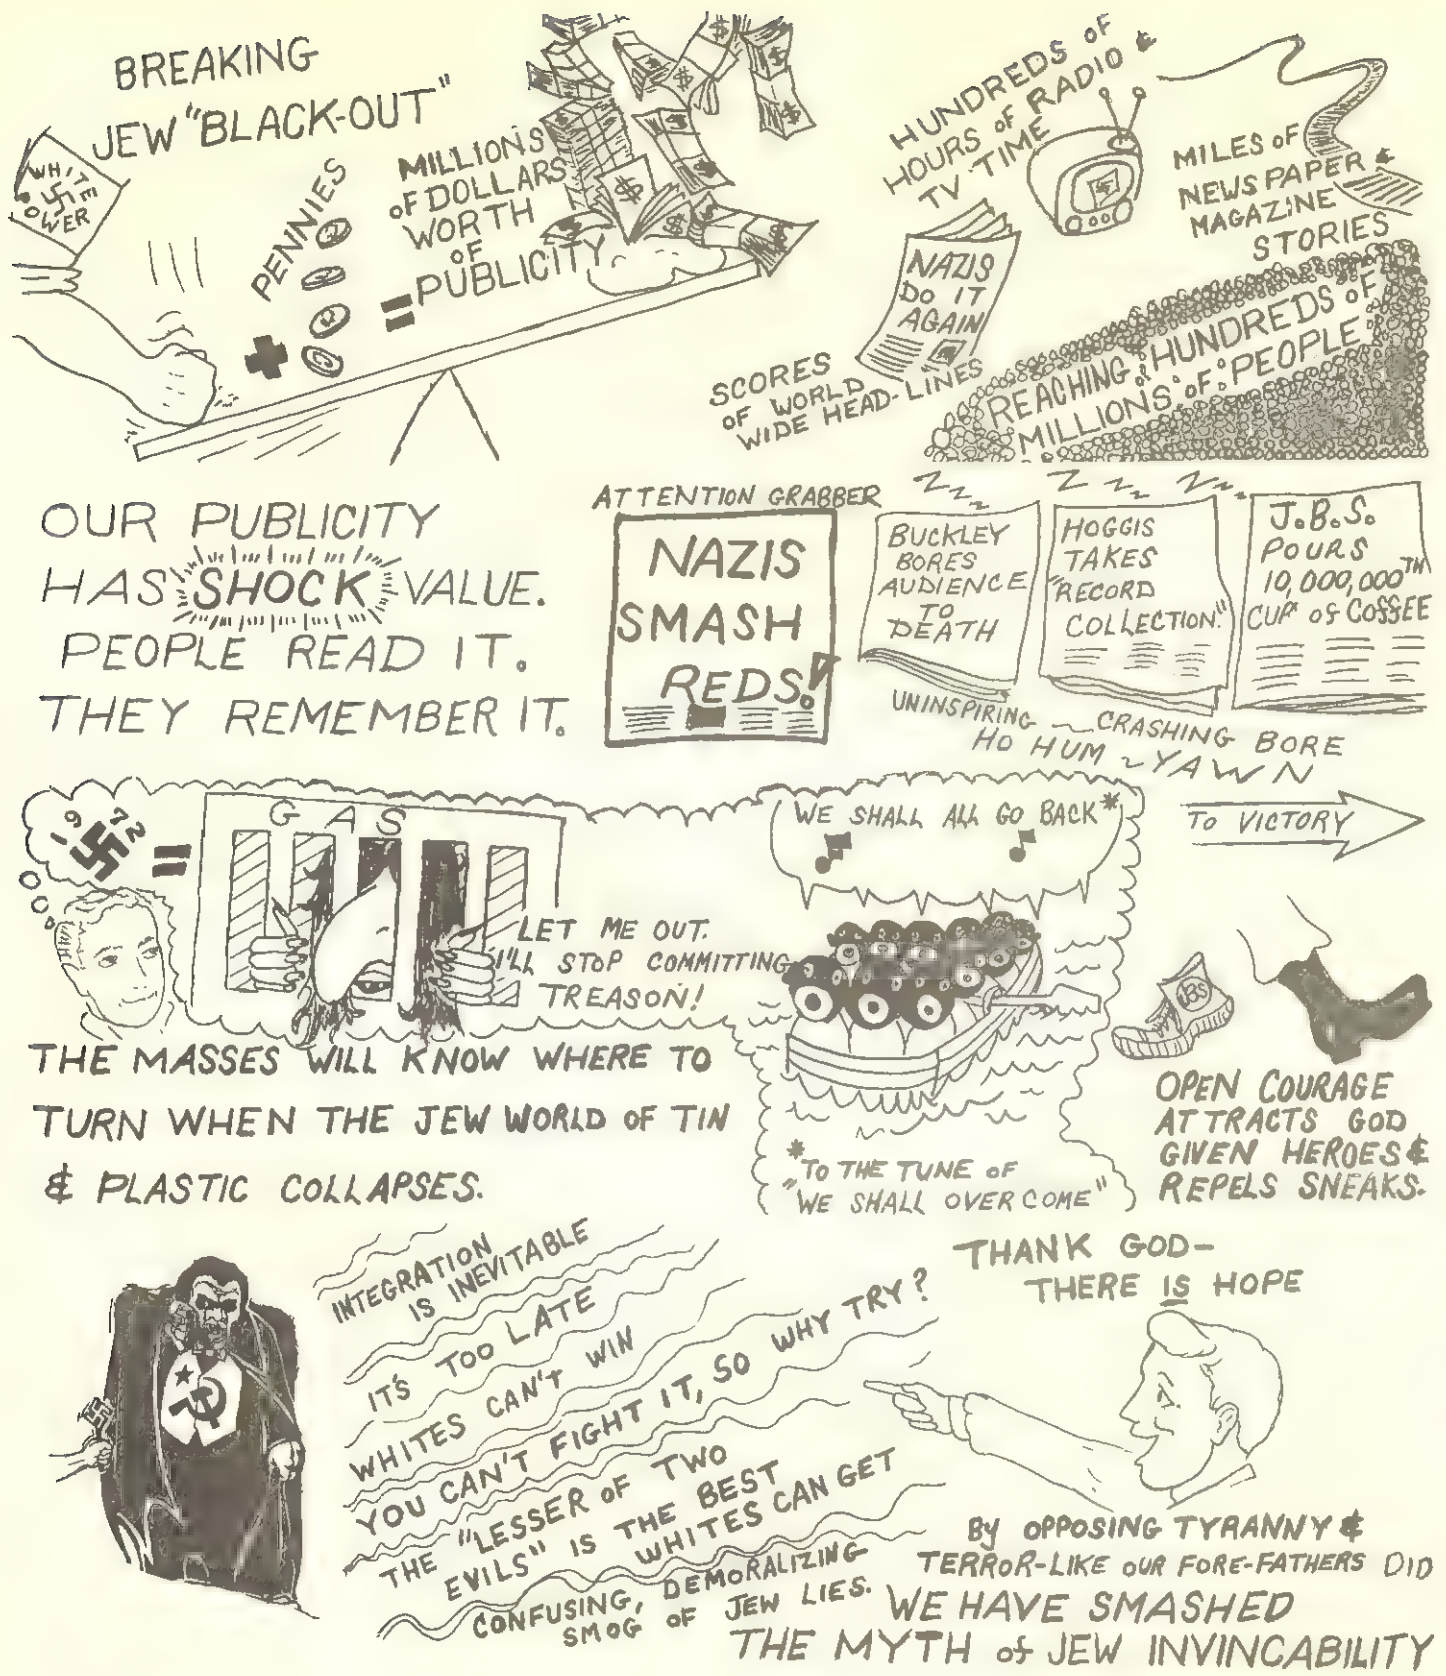 BREAKING
JEW "BLACK-OUT"
WHITE
POWER
PENNIES
MILLIONS
OF DOLLARS
WORTH
OF
PUBLICITY
+
=
HUNDREDS OF
HOURS OF RADIO &
TV TIME
MILES OF
NEWSPAPER &
MAGAZINE
STORIES
NAZIS
DO IT
AGAIN
SCORES
OF WORLD
WIDE HEAD-LINES
REACHING HUNDREDS OF
MILLIONS OF PEOPLE
OUR PUBLICITY
HAS SHOCK VALUE.
PEOPLE READ IT.
THEY REMEMBER IT.
ATTENTION GRABBER
NAZIS
SMASH
REDS!
BUCKLEY
BORES
AUDIENCE
TO
DEATH
HOGGIS
TAKES
"RECORD
COLLECTION."
J.B.S.
POURS
10,000,000TH
CUP OF COFFEE
UNINSPIRING ~ CRASHING BORE
HO HUM ~ YAWN
1972
=
GAS
LET ME OUT.
I'LL STOP COMMITTING
TREASON!
WE SHALL ALL GO BACK*
TO VICTORY
JBS
THE MASSES WILL KNOW WHERE TO
TURN WHEN THE JEW WORLD OF TIN
& PLASTIC COLLAPSES.
*
"TO THE TUNE OF
"WE SHALL OVERCOME"
OPEN COURAGE
ATTRACTS GOD
GIVEN HEROES &
REPELS SNEAKS.
INTEGRATION
IS INEVITABLE
IT'S TOO LATE
WHITES CAN'T WIN
YOU CAN'T FIGHT IT, SO WHY TRY?
THE "LESSER OF TWO
EVILS" IS THE BEST
WHITES CAN GET
CONFUSING, DEMORALIZING
SMOG OF JEW LIES.
THANK GOD-
THERE IS HOPE
BY OPPOSING TYRANNY &
TERROR-LIKE OUR FORE-FATHERS DID
WE HAVE SMASHED
THE MYTH of JEW INVINCABILITY